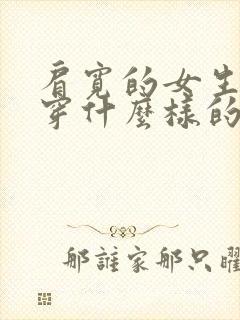 肩寬的女生
穿什麼樣的
那誰家那只